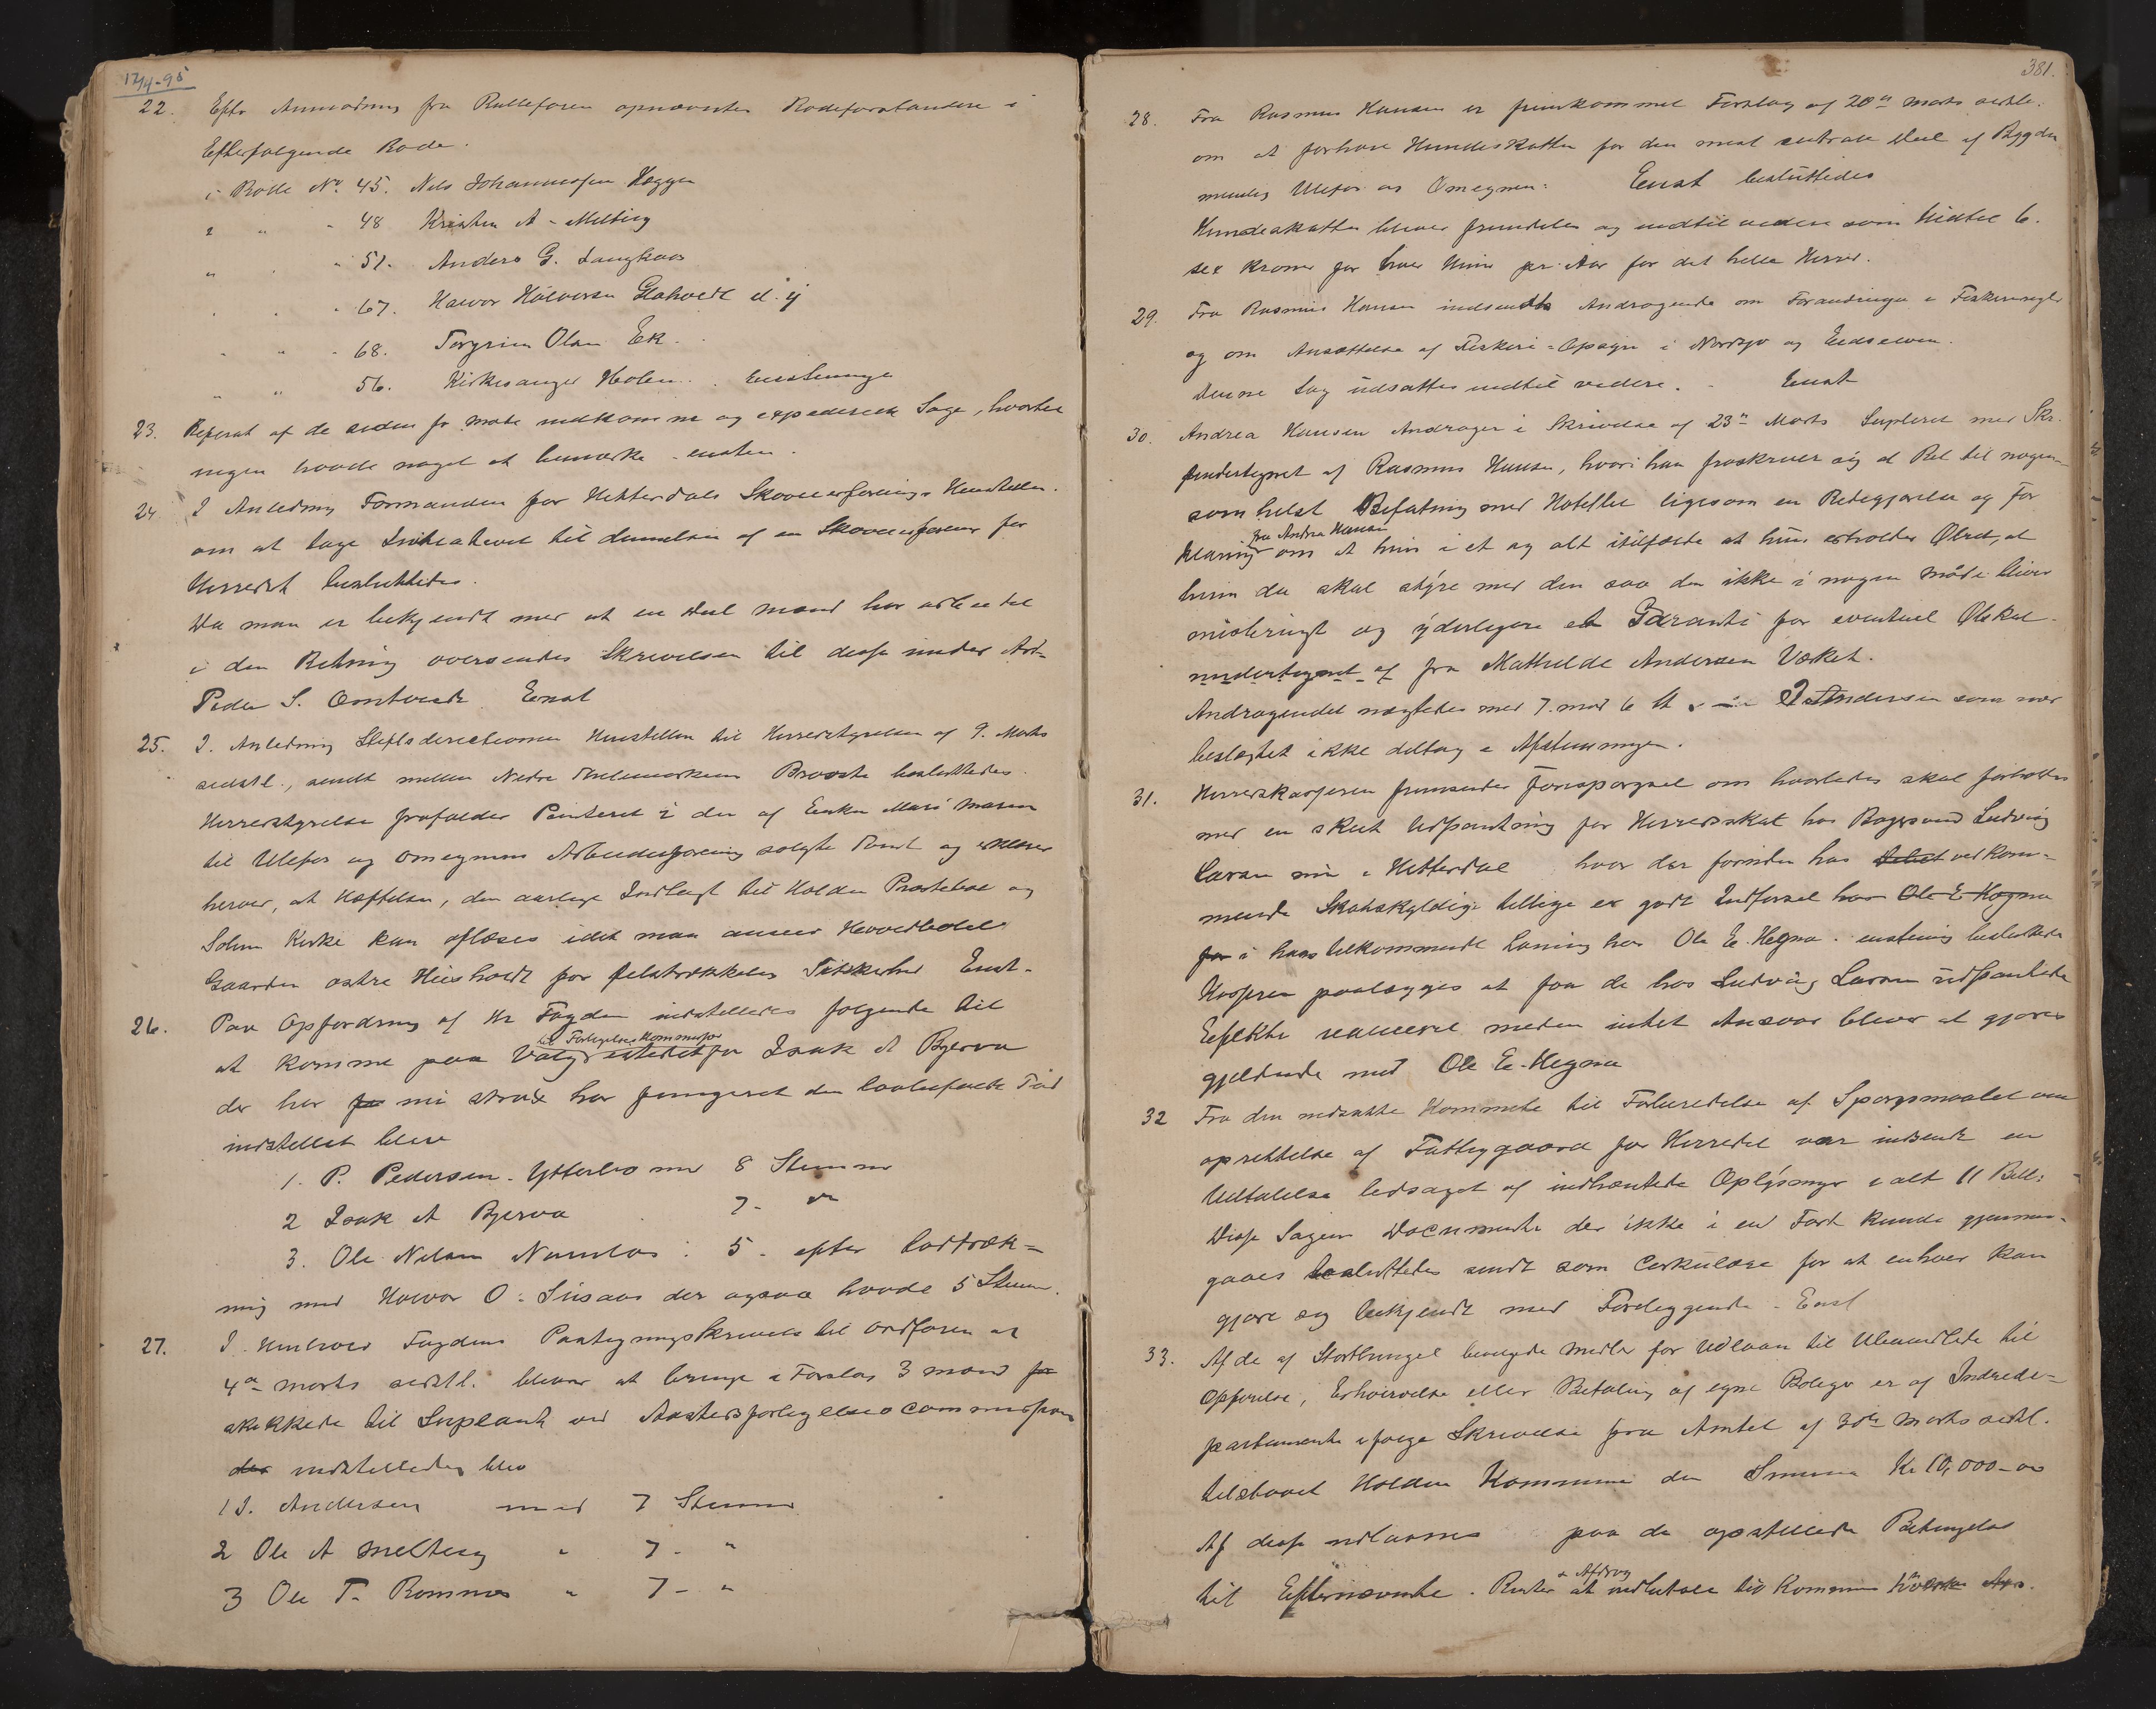 17/4-95
22. Efter Anmodning fra Rulleføren opnævntes Rodeforstandere i
Efterfølgende Rode.
i Rode No. 45. Nils Johannessen Hegge
" " " 48 Kristen A. Melteig
" " " 51. Anders G. Langkaas
" " " 67. Halvor Halvorsen Glaholt d. y
" " " 68. Torgrim Olsen Ek.
" " 56. Kirkesanger Holen. Enstemmige
23. Referat af de siden fr møde indkomne og expederede Sage, hvortil
ingen havde noget at bemærke. ensten.
24 I Anledning Formanden for Hitterdals Skoveierforenings Henstillen
om at tage Initiativet til dannelsen af en Skoveierforening for
Herredet besluttedes.
Da man er bekjendt med at en Deel mænd har arbeidet
i den Retning oversendes Skrivelsen til disse under Adr.
Peder S. Omtvedt. Enst
25. I. Anledning Stiftsdirectionen Henstillen til Herredstyrelsen af 9. Marts
sidstl., sendt mellem Nedre Thelemarkens Provste besluttedes.
Herredstyrelsen frafalder Panteret i den af Enke Mari Maren
til Ulefos og omegnens Arbeiderforening solgte Tomt og erklærer
herved, at Hæftelsen, den aarlige Indtægt til Holden Præstebol og
Solum Kirke kan aflæses idet man anseer Hovedbølet
Gaarden østre Hiisholt for fulstrækkelig Sikkerhed Enst.
26. Paa Opfordring af Hr Fogden indstilledes følgende til
til Forligelses Kommissær
at komme paa Valg istedetfor Isak A Bjerva
der har fu nu strax har fungeret den lovbefalede Tid
indstillet bleve
1. P. Pedersen Ytterbø med 8 Stemmer
2 Isak A Bjerva 7 - "
3. Ole Nilsen Namløs : 5 - efter lodtræk=
ning med Halvor O. Siisaas der ogsaa havde 5 Stemm.
27. I. Henhold Fogdens Paategningsskrivelse til ordføren af
4de marts sidstl. blever at bringe i Forslag 3 mænd for
skikkede til Suplant ved Aastedsforligelsescommissionen
der indstilledes blev
1 I. Andersen med 7 Stemmer
2 Ole A Melteig " 7 - "
3 Ole T. Romnes " 7 - "
381.
28. Fra Rasmus Hansen er fremkommet Forslag af 20de marts sidstl.
om at forhøie Hundeskatten for den mest centrale Deel af Bygden
nemlig Ulefos og Omegnen: Enst besluttedes
Hundeskatten bliver fremdeles og indtil videre som hidtil 6.
sex Kroner for hver Hund pr. Aar for det hele Herred.
29. Fra Rasmus Hansen indsendte Andragende om Forandringer i Fiskereregler
og om Ansættelse af Fiskeri=Opsyn i Nordsjø og Eidselven.
Denne Sag udsattes indtil videre. - Enst
30. Andrea Hansen Andrager i Skrivelse af 23de Marts Supleret med Skr.
undertegnet af Rasmus Hansen, hvori han fraskriver sig al Ret til nogen=
somhelst Befatning med Hotellet ligesom en Redegjørelse og For
fra Andrea Hansen
klaring om at hun i et og alt itilfælde at hun erholder Ølret, at
hun da skal styre med den saa den ikke i nogen måde bliver
misbrugt og yderligere et Garanti for eventuel Ølskat
undertegnet af fra Mathilde Andersen Vøket.
Andragendet negtedes med 7 mod 6 St. I Andersen som nær
beslægtet ikke deltog i Afstemningen.
31. Herredskasseren fremsender Forespørgsel om hvorledes skal forholdes
med en skeet Udpantning for Herredsskat hos Bagersvend Ludvig
Larsen nu i Hitterdal hvor der forinden hos vedkom=
mende Skatskyldige tillige er gjort Indførsel hos Ole E Hegna
for i hans tilkommende Løning hos Ole E. Hegna. enstemig besluttedes
Kasseren paalægges at faa de hos Ludvig Larsen udpantede
Effekter realiseret medens intet Ansvar bliver at gjøres
gjeldende mod Ole E. Hegna
32 Fra den nedsatte Kommitte til Forberedelse af Spørgsmaalet om
oprettelse af Fattiggaard for Herredet var indsendt en
Udtalelse ledsaget af indhæntede Oplysninger i alt 11 Bill:
Disse Sagens Documente der ikke i en Fart kunde gjennem=
gaaes besluttedes sendt som Cirkulære for at enhver kan
gjøre sig bekjendt med Foreliggende - Enst
33. Af de af Storthinget bevilgede midler for Udlaan til Ubemidlede til
Opførelse, Erhvervelse eller Betaling af egne Boliger er af Indrede=
partementet ifølge Skrivelse fra Amtet af 30te Marts sidstl.
tilstaaet Holden Kommune den Summa Kr 10,000-00
Af disse udlaanes paa de opstillede Betingelser
& Afdrag
til Efternævnte. Renter at indbetale til Kommunen